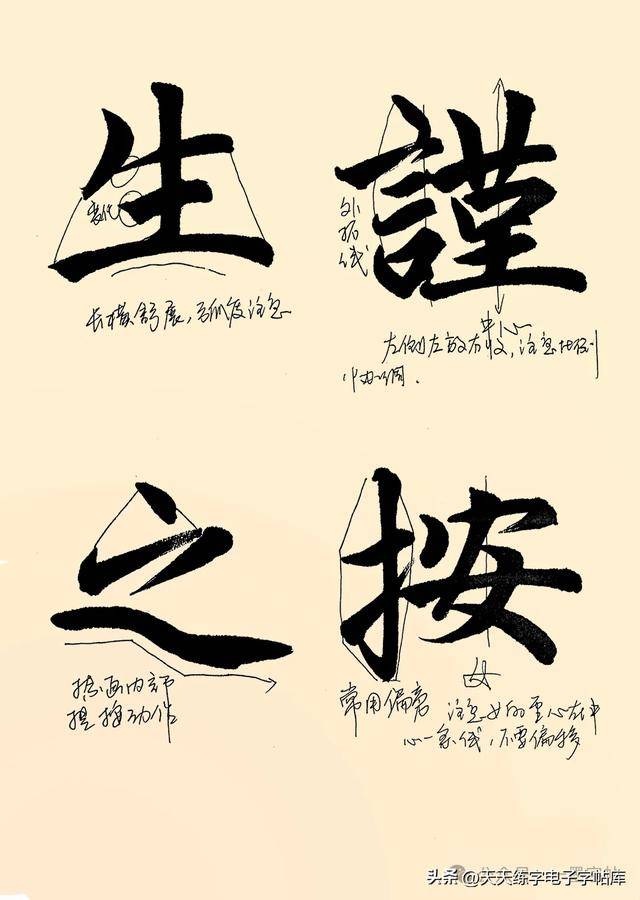 生
变化
长横舒展，弧度注意
謹
外拓线
中心
左侧左放右收，注意比例
协调.
之
捺画内部
提按动作
按
常用偏旁
女
注意女的重心在中
心一条线，不要偏移
头条@天天练字电子字帖库